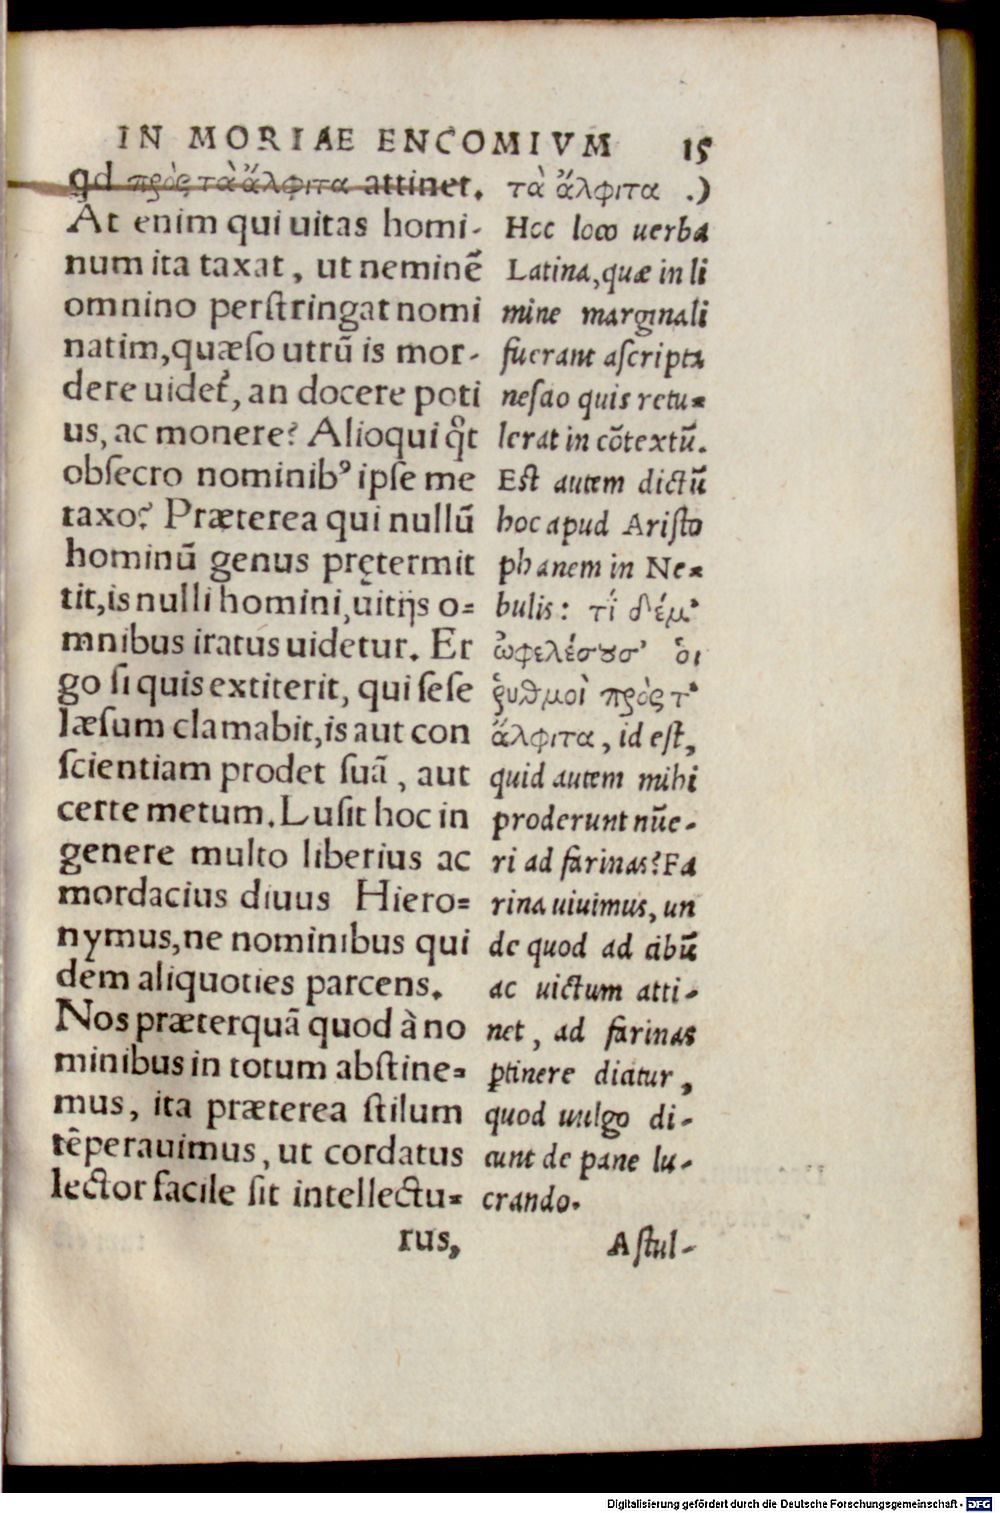 IN MORIAE ENCOMIVM 15
qd πρὸς τὰ ἄλφιτα attinet.
At enim qui uitas homi-
num ita taxat, ut neminē
omnino perstringat nomi
natim, quæso utrū is mor-
dere uidet᷑, an docere poti
us, ac monere? Alioqui qͦt
obsecro nominibꝰ ipse me
taxo? Præterea qui nullū
hominū genus prętermit
tit, is nulli homini, uitijs o=
mnibus iratus uidetur. Er
go si quis extiterit, qui sese
læsum clamabit, is aut con
scientiam prodet suā, aut
certe metum. Lusit hoc in
genere multo liberius ac
mordacius diuus Hiero=
nymus, ne nominibus qui
dem aliquoties parcens.
Nos præterquā quod à no
minibus in totum abstine=
mus, ita præterea stilum
tēperauimus, ut cordatus
lector facile sit intellectu=
rus,
τὰ ἄλφιτα .)
Hoc loco uerba
Latina, quæ in li
mine marginali
fuerant ascripta
nescio quis retu=
lerat in cōtextū.
Est autem dictū
hoc apud Aristo
phanem in Ne=
bulis: τί δέ μ᾽
ὠφελέσουσ᾽ οἱ
ῥυθμοὶ πρὸς τ᾽
ἄλφιτα, id est,
quid autem mihi
proderunt nūe-
ri ad farinas? Fa
rina uiuimus, un
de quod ad cibū
ac uictum atti-
net, ad farinas
ꝑtinere dicitur,
quod uulgo di-
cunt de pane lu-
crando.
Astul-
Digitalisierung gefördert durch die Deutsche Forschungsgemeinschaft - DFG